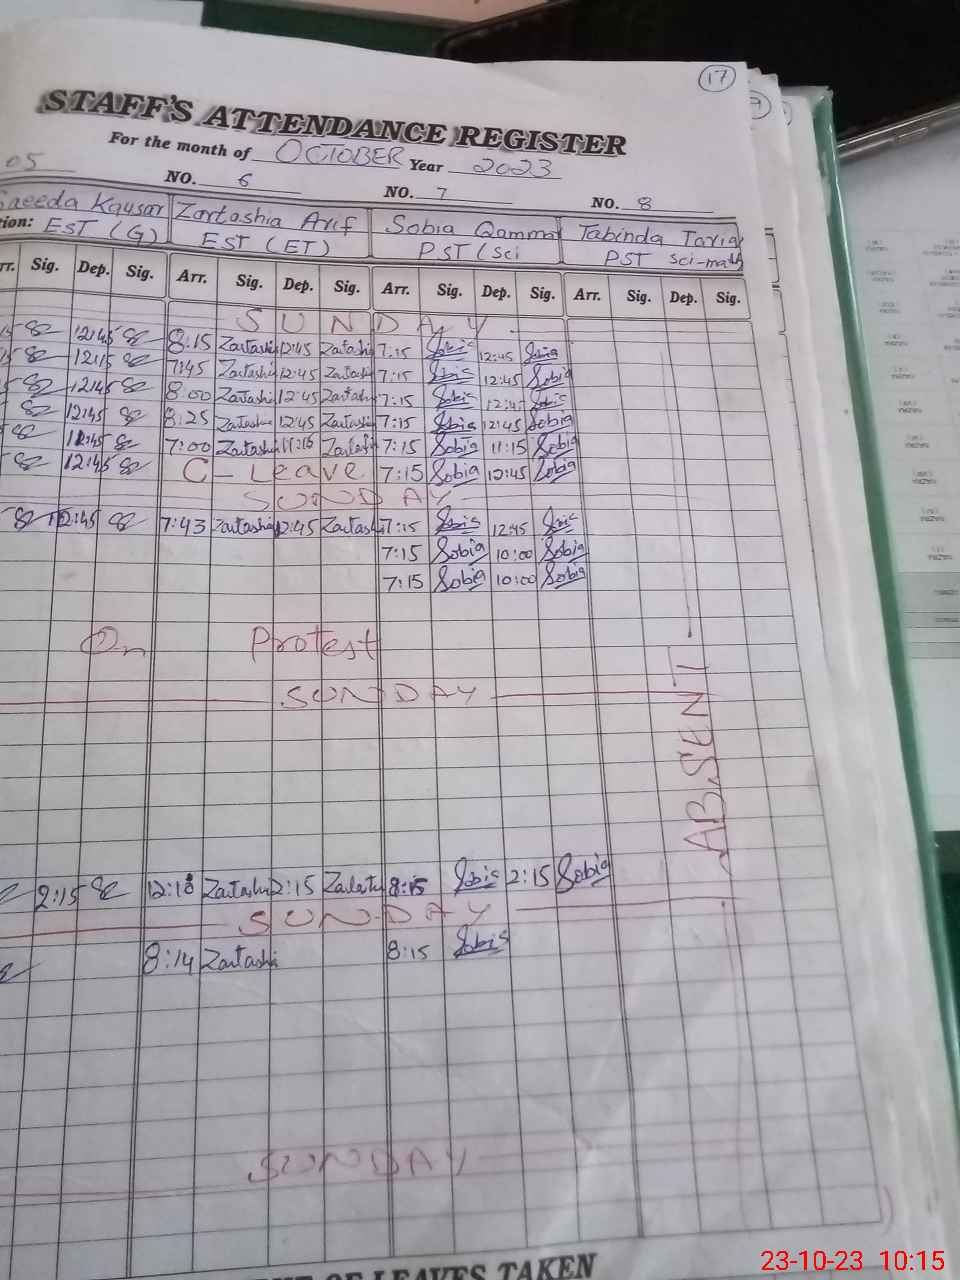 17
STAFF'S ATTENDANCE REGISTER
For the month of OCTOBER Year 2023
05 NO. 6 NO. 7 NO. 8
Saeeda Kausar Zartashia Arif Sobia Qammar Tabinda Tariq
tion: EST (G) EST (ET) PST (Sci PST sci-math
rr. Sig. Dep. Sig. Arr. Sig. Dep. Sig. Arr. Sig. Dep. Sig. Arr. Sig. Dep. Sig.
SUNDAY
12:45 8:15 Zartashi 12:45 Zartashi 7:15 Sobia 12:45 Sobia
7:45 Zartashi 12:45 Zartashi 7:15 Sobia 12:45 Sobia
12:45 8:00 Zartashi 12:45 Zartashi 7:15 Sobia 12:45 Sobia
12:45 8:25 Zartashi 12:45 Zartashi 7:15 Sobia 12:45 Sobia
7:00 Zartashi 11:15 Zartashi 7:15 Sobia 11:15 Sobia
12:45 C - Leave 7:15 Sobia 12:45 Sobia
SUNDAY
12:45 7:43 Zartashi 12:45 Zartashi 7:15 Sobia 12:45 Sobia
7:15 Sobia 10:00 Sobia
7:15 Sobia 10:00 Sobia
On Protest
SUNDAY
ABSENT
2:15 12:18 Zartashi 2:15 Zartashi 8:15 Sobia 2:15 Sobia
SUNDAY
8:14 Zartashi 8:15 Sobia
SUNDAY
OF LEAVES TAKEN
23-10-23 10:15